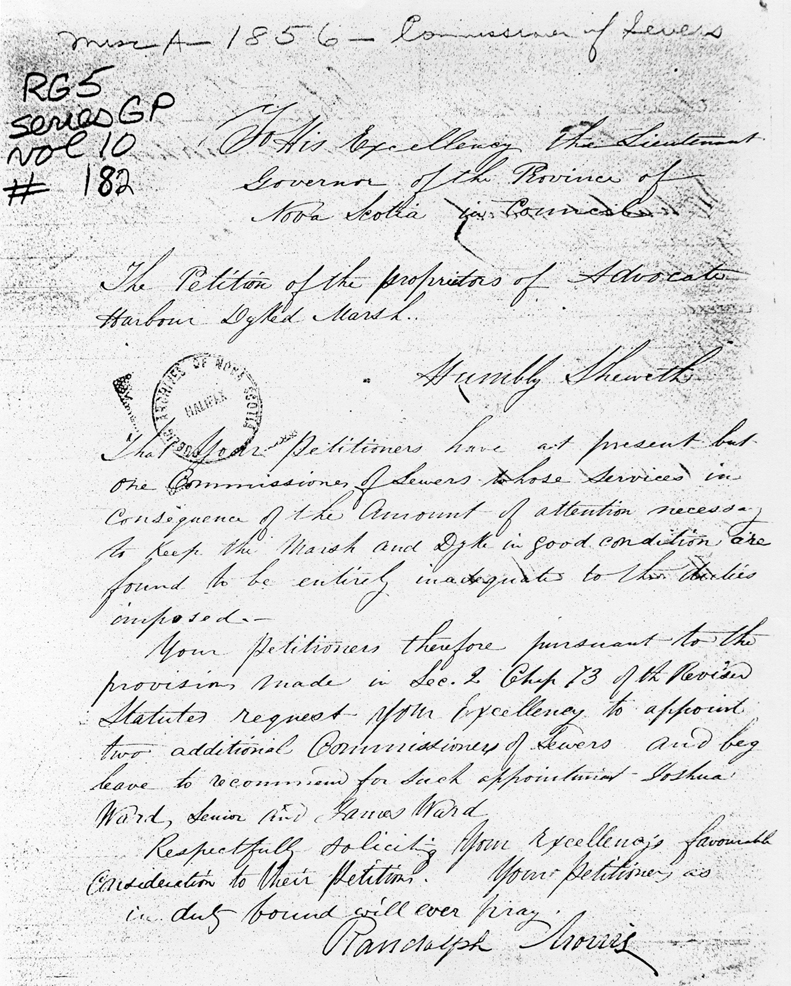 Misc A - 1856 - Commissioner of Sewers
RG5
series GP
vol 10
# 182
To His Excellency the Lieutenant
Governor of the Province of
Nova Scotia in Council
The Petition of the proprietors of Advocate
Harbour Dyked Marsh.
Humbly Sheweth
PUBLIC ARCHIVES OF NOVA SCOTIA
HALIFAX
That Your Petitioners have at present but
one Commissioner of Sewers whose services in
Consequence of the Amount of attention necessary
to keep the Marsh and Dyke in good condition, are
found to be entirely inadequate to the duties
imposed.-
Your Petitioners therefore pursuant to the
provisions made in Sec. 2 Chap 73 of the Revised
Statutes request Your Excellency to appoint
two additional Commissioners of Sewers and beg
leave to recommend for such appointment Joshua
Ward, Senior and James Ward
Respectfully soliciting Your Excellency's favourable
Consideration to their Petition. Your Petitioners, as
in duty bound will ever pray.
Randolph Morris